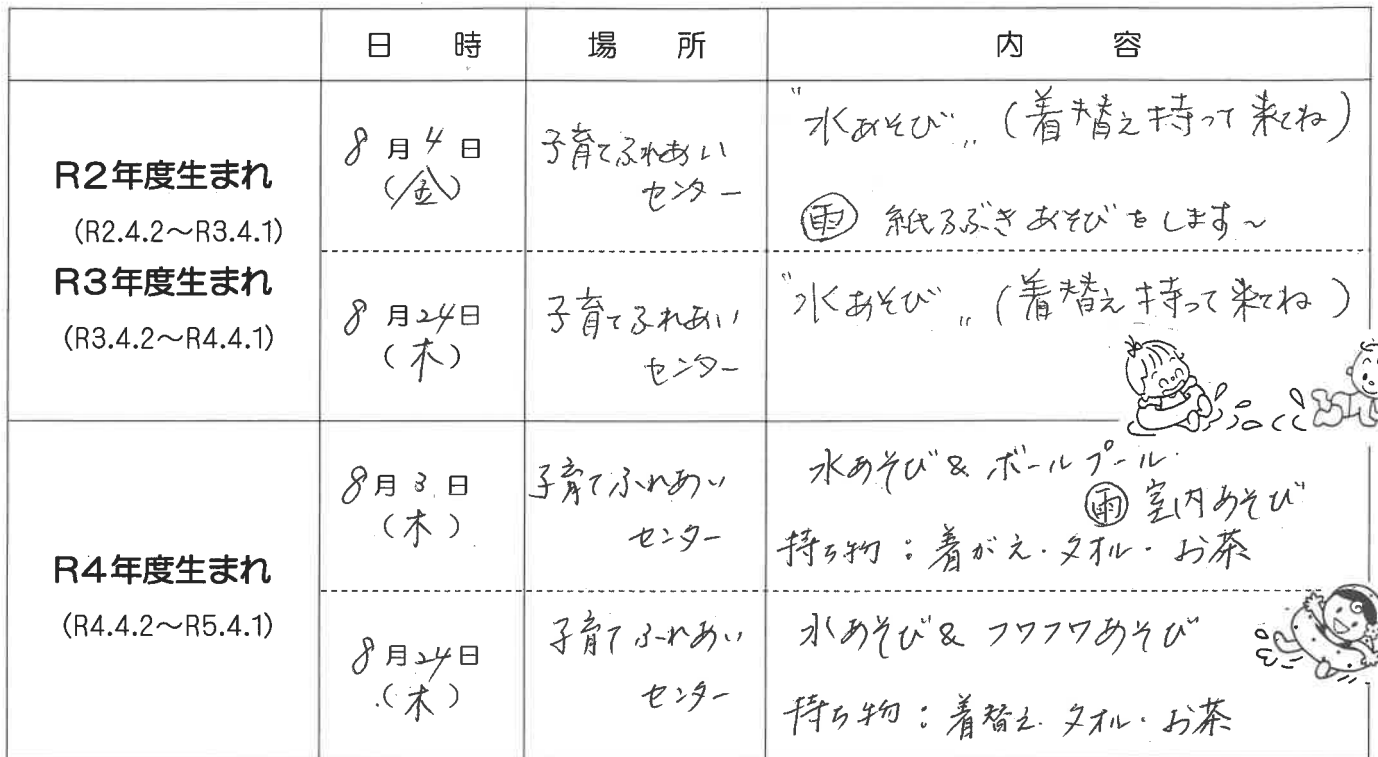 日 時 場 所 内 容
R2年度生まれ
(R2.4.2～R3.4.1)
R3年度生まれ
(R3.4.2～R4.4.1)
8月4日
(金)
子育てふれあい
センター
"水あそび" (着替え持って来てね)
雨 紙ふぶきあそびをします～
8月24日
(木)
子育てふれあい
センター
"水あそび" (着替え持って来てね)
R4年度生まれ
(R4.4.2～R5.4.1)
8月3日
(木)
子育てふれあい
センター
水あそび & ボールプール
雨 室内あそび
持ち物：着がえ・タオル・お茶
8月24日
(木)
子育てふれあい
センター
水あそび & フワフワあそび
持ち物：着替え・タオル・お茶